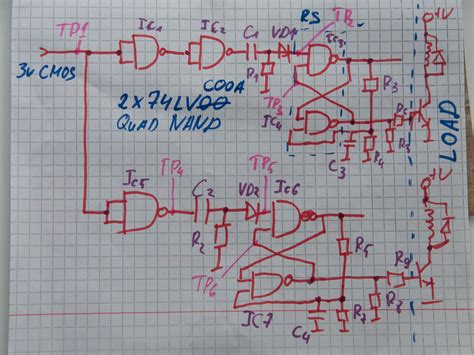 TP1
IC1
IC2
C1
VD1
RS
TP2
IC3
+1V
3V CMOS
R1
TP3
R3
C00A
2 x 74LV00
QUAD NAND
IC4
C3
R4
LOAD
+1V
IC5
TP4
C2
VD2
TP5
IC6
R2
R5
TP6
IC7
C4
R7
R8
R9